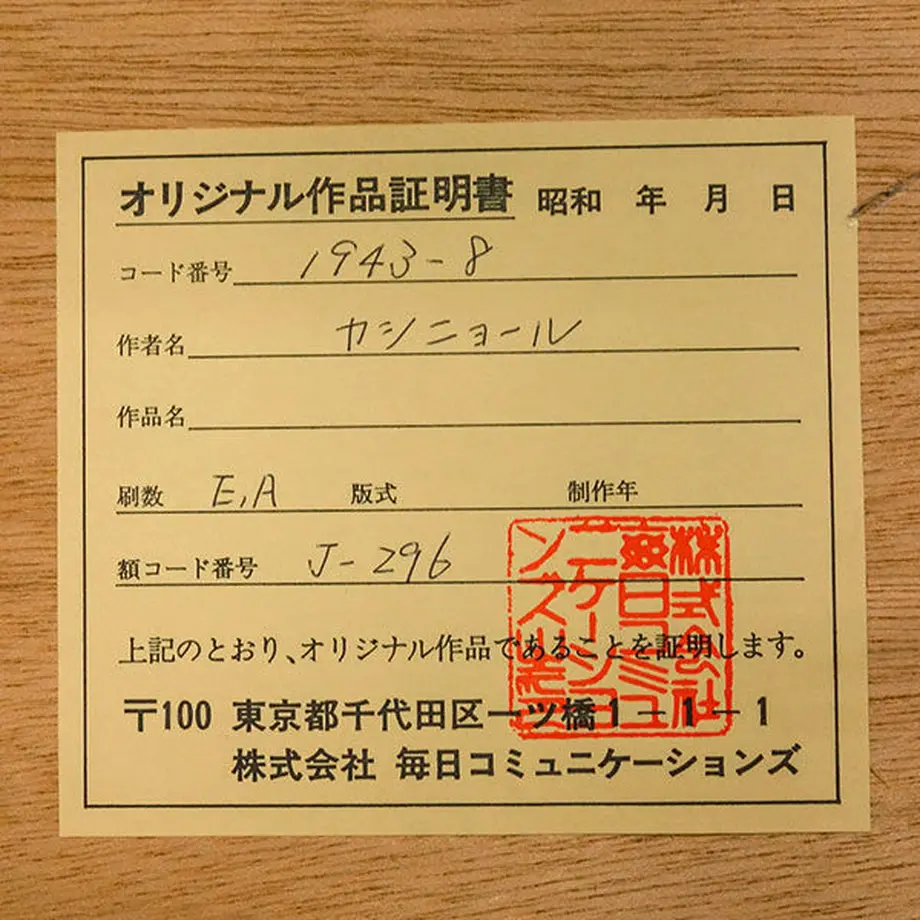 オリジナル作品証明書 昭和 年 月 日
コード番号 1943-8
作者名 カシニョール
作品名
刷数 E,A 版式 制作年
額コード番号 J-296
上記のとおり、オリジナル作品であることを証明します。
〒100 東京都千代田区一ツ橋1-1-1
株式会社 毎日コミュニケーションズ
株式会社
毎日コミュ
ニケーショ
ンズ